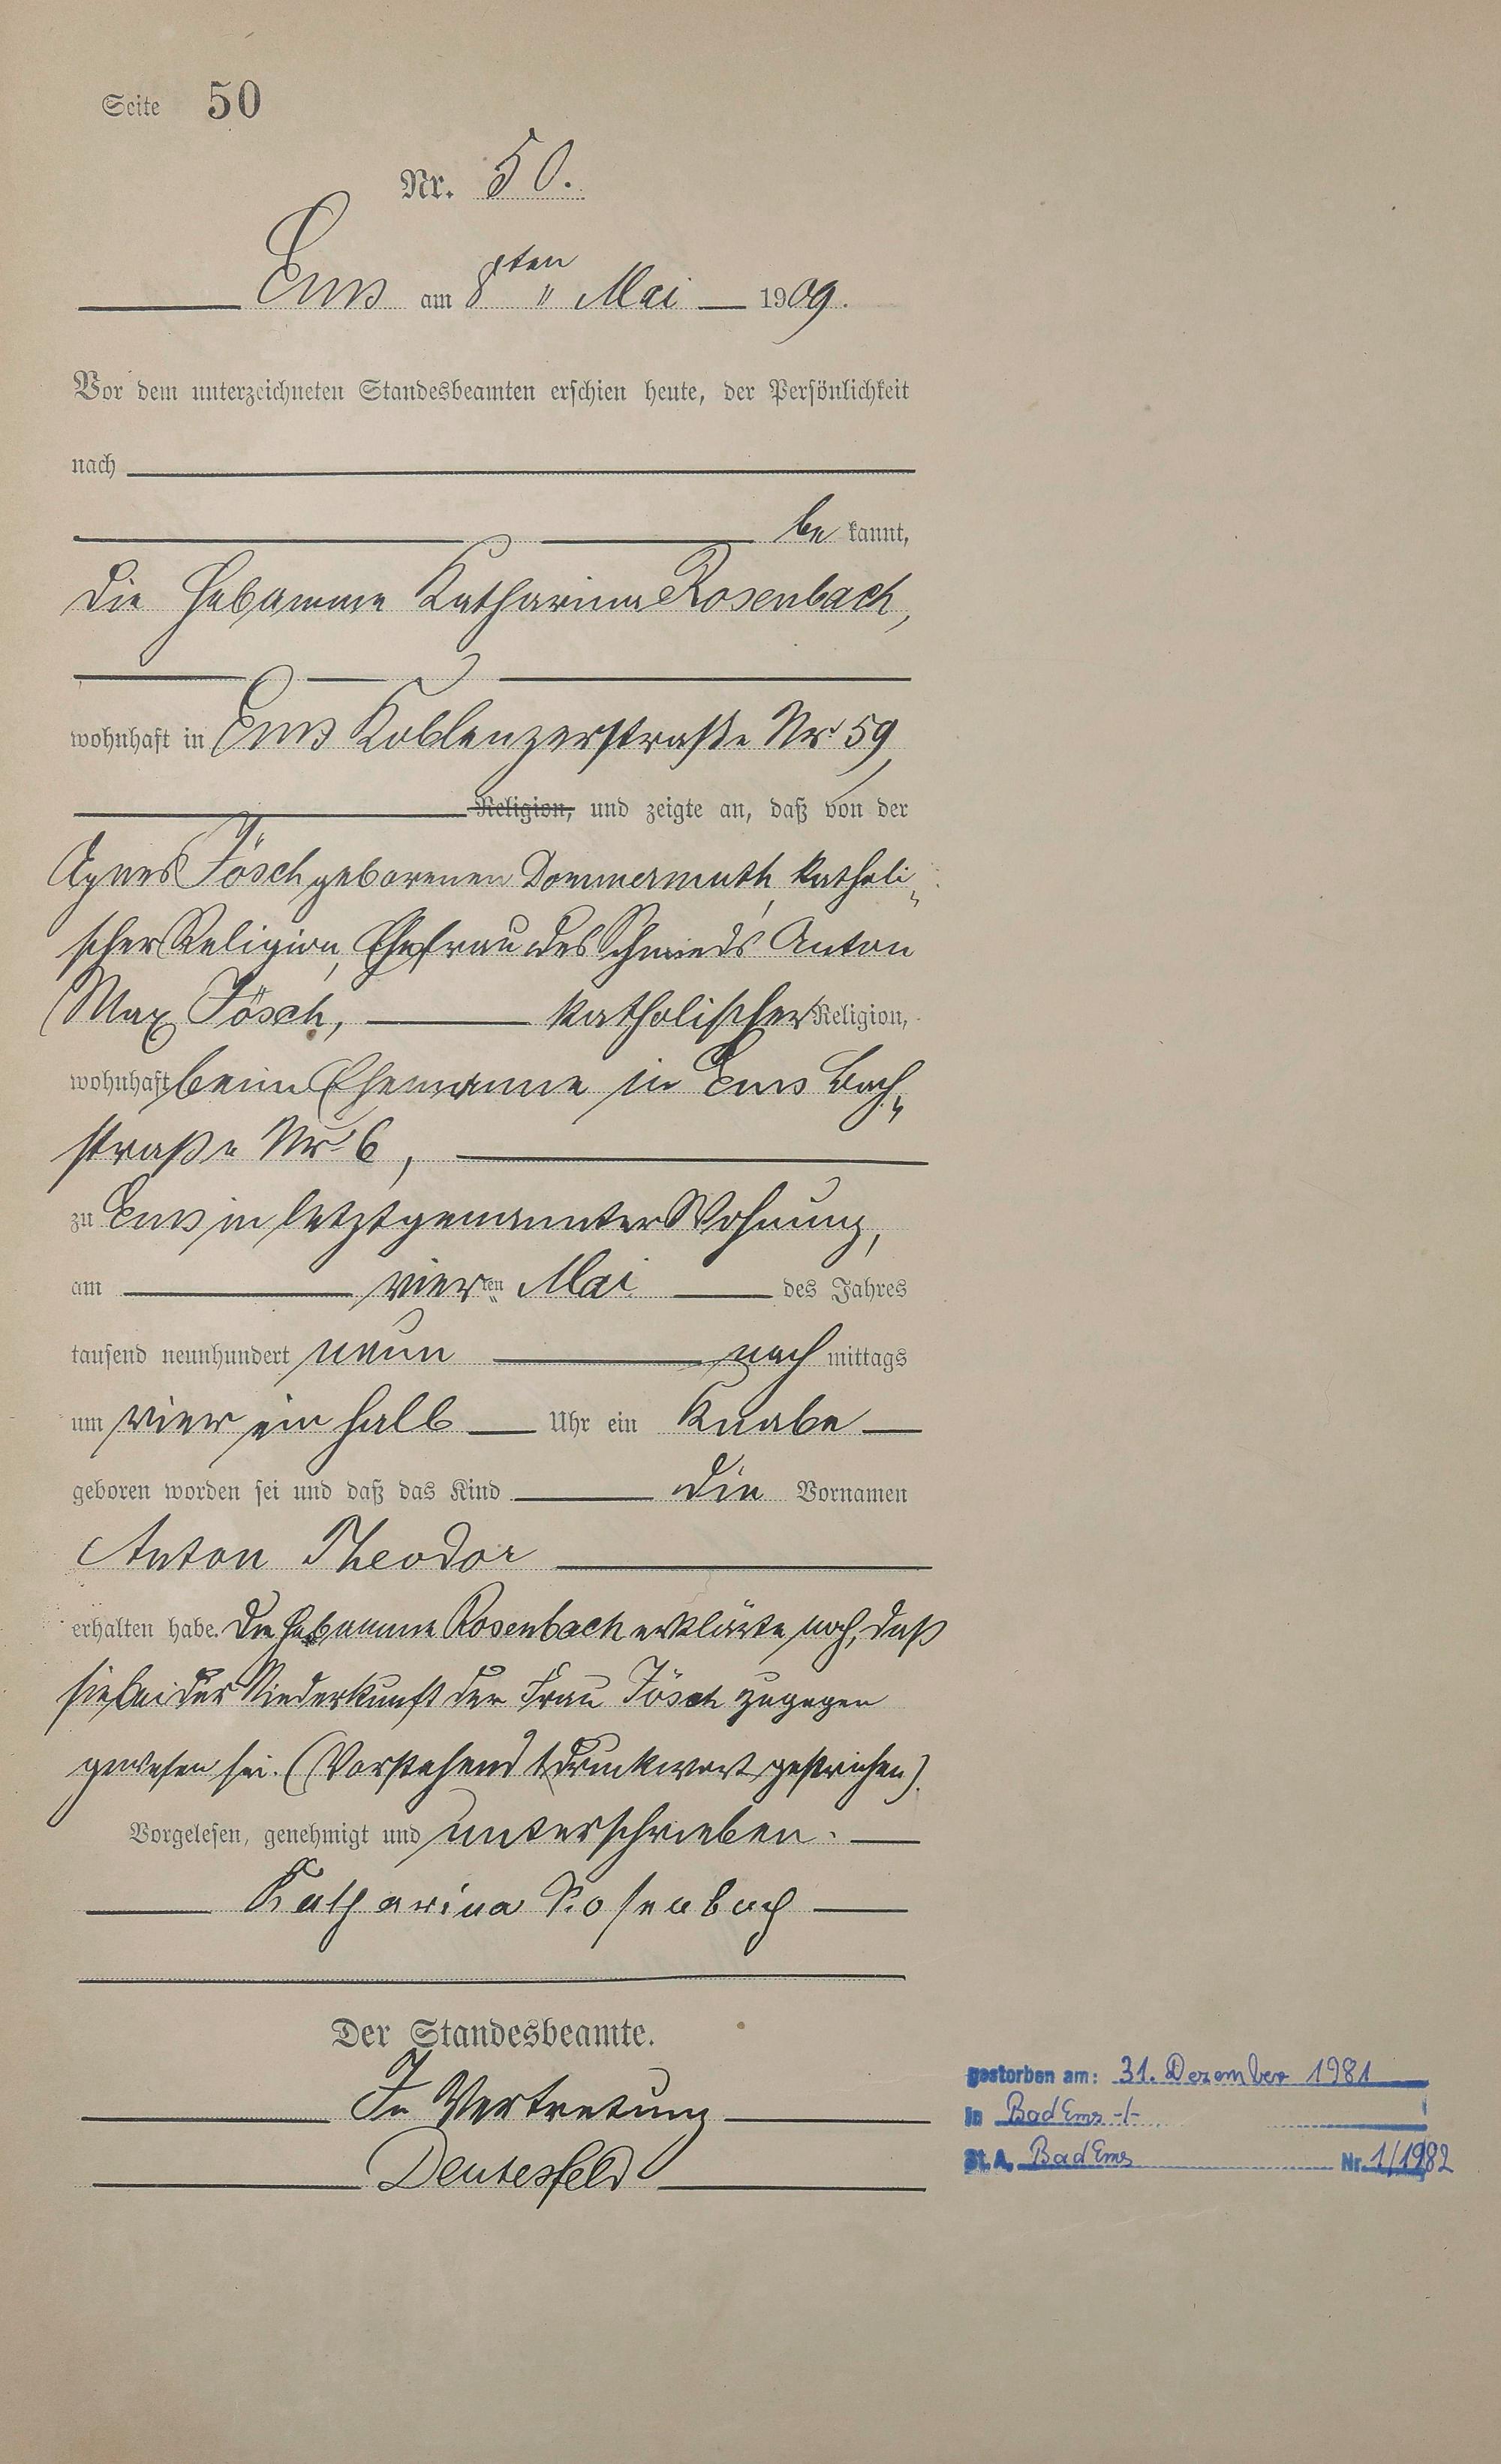 Seite 50
Nr. 50.
Ems am 8ten " Mai 1909.
Vor dem unterzeichneten Standesbeamten erschien heute, der Persönlichkeit
nach
be kannt,
die Hebamme Katharina Rosenbach,
wohnhaft in Ems Koblenzerstraße Nr. 59,
Religion, und zeigte an, daß von der
Agnes Jösch geborenen Dommermuth, katholi„
scher Religion, Ehefrau des Schmieds Anton
Max Jösch, katholischer Religion,
wohnhaft beim Ehemanne in Ems Bach„
straße Nr. 6,
zu Ems in letztgenannter Wohnung,
am vierten Mai des Jahres
tausend neunhundert neun nach mittags
um vier ein halb Uhr ein Knabe
geboren worden sei und daß das Kind die Vornamen
Anton Theodor
erhalten habe. Die Hebamme Rosenbach erklärte noch, daß
sie bei der Niederkunft der Frau Jösch zugegen
gewesen sei. (Vorstehend 1 Druckwort gestrichen).
Vorgelesen, genehmigt und unterschrieben.
Katharina Rosenbach
Der Standesbeamte.
In Vertretung
Deutesfeld
gestorben am: 31. Dezember 1981
in Bad Ems -/-
St.A. Bad Ems Nr. 1/1982